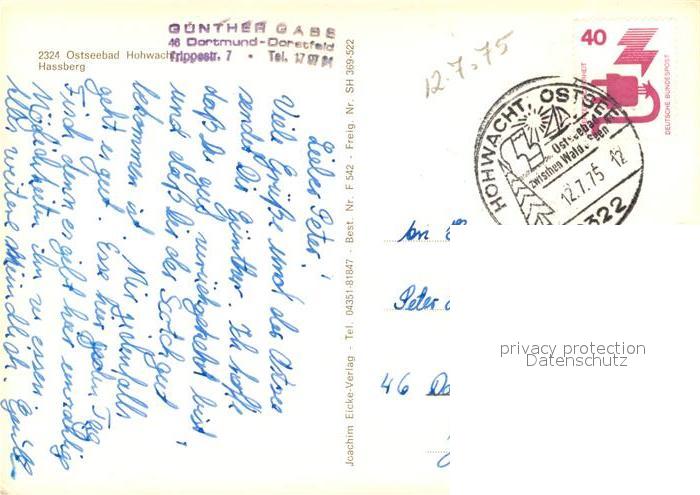 GÜNTHER GABE
46 Dortmund-Dorstfeld
Trippestr. 7 • Tel. 17 97 81
2324 Ostseebad Hohwacht
Hassberg
12.7.75
40
DEUTSCHE BUNDESPOST
HOHWACHT, OSTSEE
Ostseebad
zwischen Wald u. Seen
12.7.75 12
2322
Joachim Eicke-Verlag - Tel. 04351-81847 - Best. Nr. F 542 - Freig. Nr. SH 369-522
Lieber Peter!
Viele Grüße von der Ostsee
sendet Dir Günther. Ich hoffe
daß Du gut zurückgekehrt bist
und daß Dir der gut
bekommen ist. Mir jedenfalls
geht es gut. Esse hier jeden Tag
Fisch denn es gibt hier unzählige
Möglichkeiten ihn zu essen.
Alles weitere Mündlich.
An
Peter
46 Do
privacy protection
Datenschutz